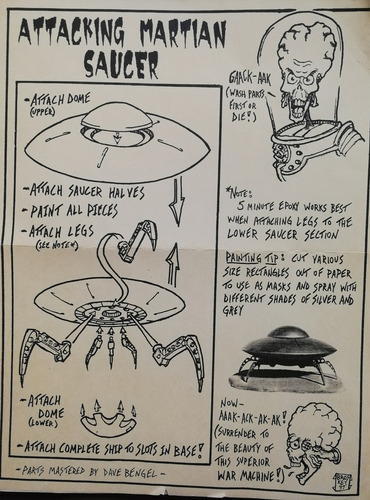 ATTACKING MARTIAN
SAUCER
-ATTACH DOME
(UPPER)
-ATTACH SAUCER HALVES
-PAINT ALL PIECES
-ATTACH LEGS
(SEE NOTE*)
-ATTACH
DOME
(LOWER)
-ATTACH COMPLETE SHIP TO SLOTS IN BASE!
-PARTS MASTERED BY DAVE BENGEL-
GAACK-AAK
(WASH PARTS
FIRST OR
DIE!)
*NOTE:
5 MINUTE EPOXY WORKS BEST
WHEN ATTACHING LEGS TO THE
LOWER SAUCER SECTION
PAINTING TIP: CUT VARIOUS
SIZE RECTANGLES OUT OF PAPER
TO USE AS MASKS AND SPRAY WITH
DIFFERENT SHADES OF SILVER AND
GREY
NOW-
AAAK-ACK-AK-AK!
(SURRENDER TO
THE BEAUTY OF
THIS SUPERIOR
WAR MACHINE!)